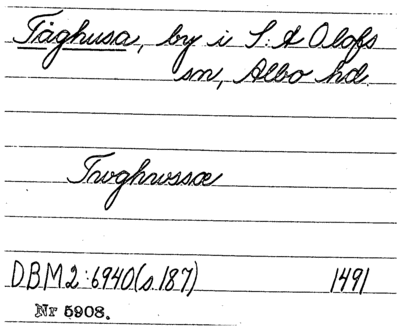 Tåghusa, by i S:t Olofs
sn, Albo hd.
Twghwssæ
DBM2:6940(s.187) 1491
Nr 5908.